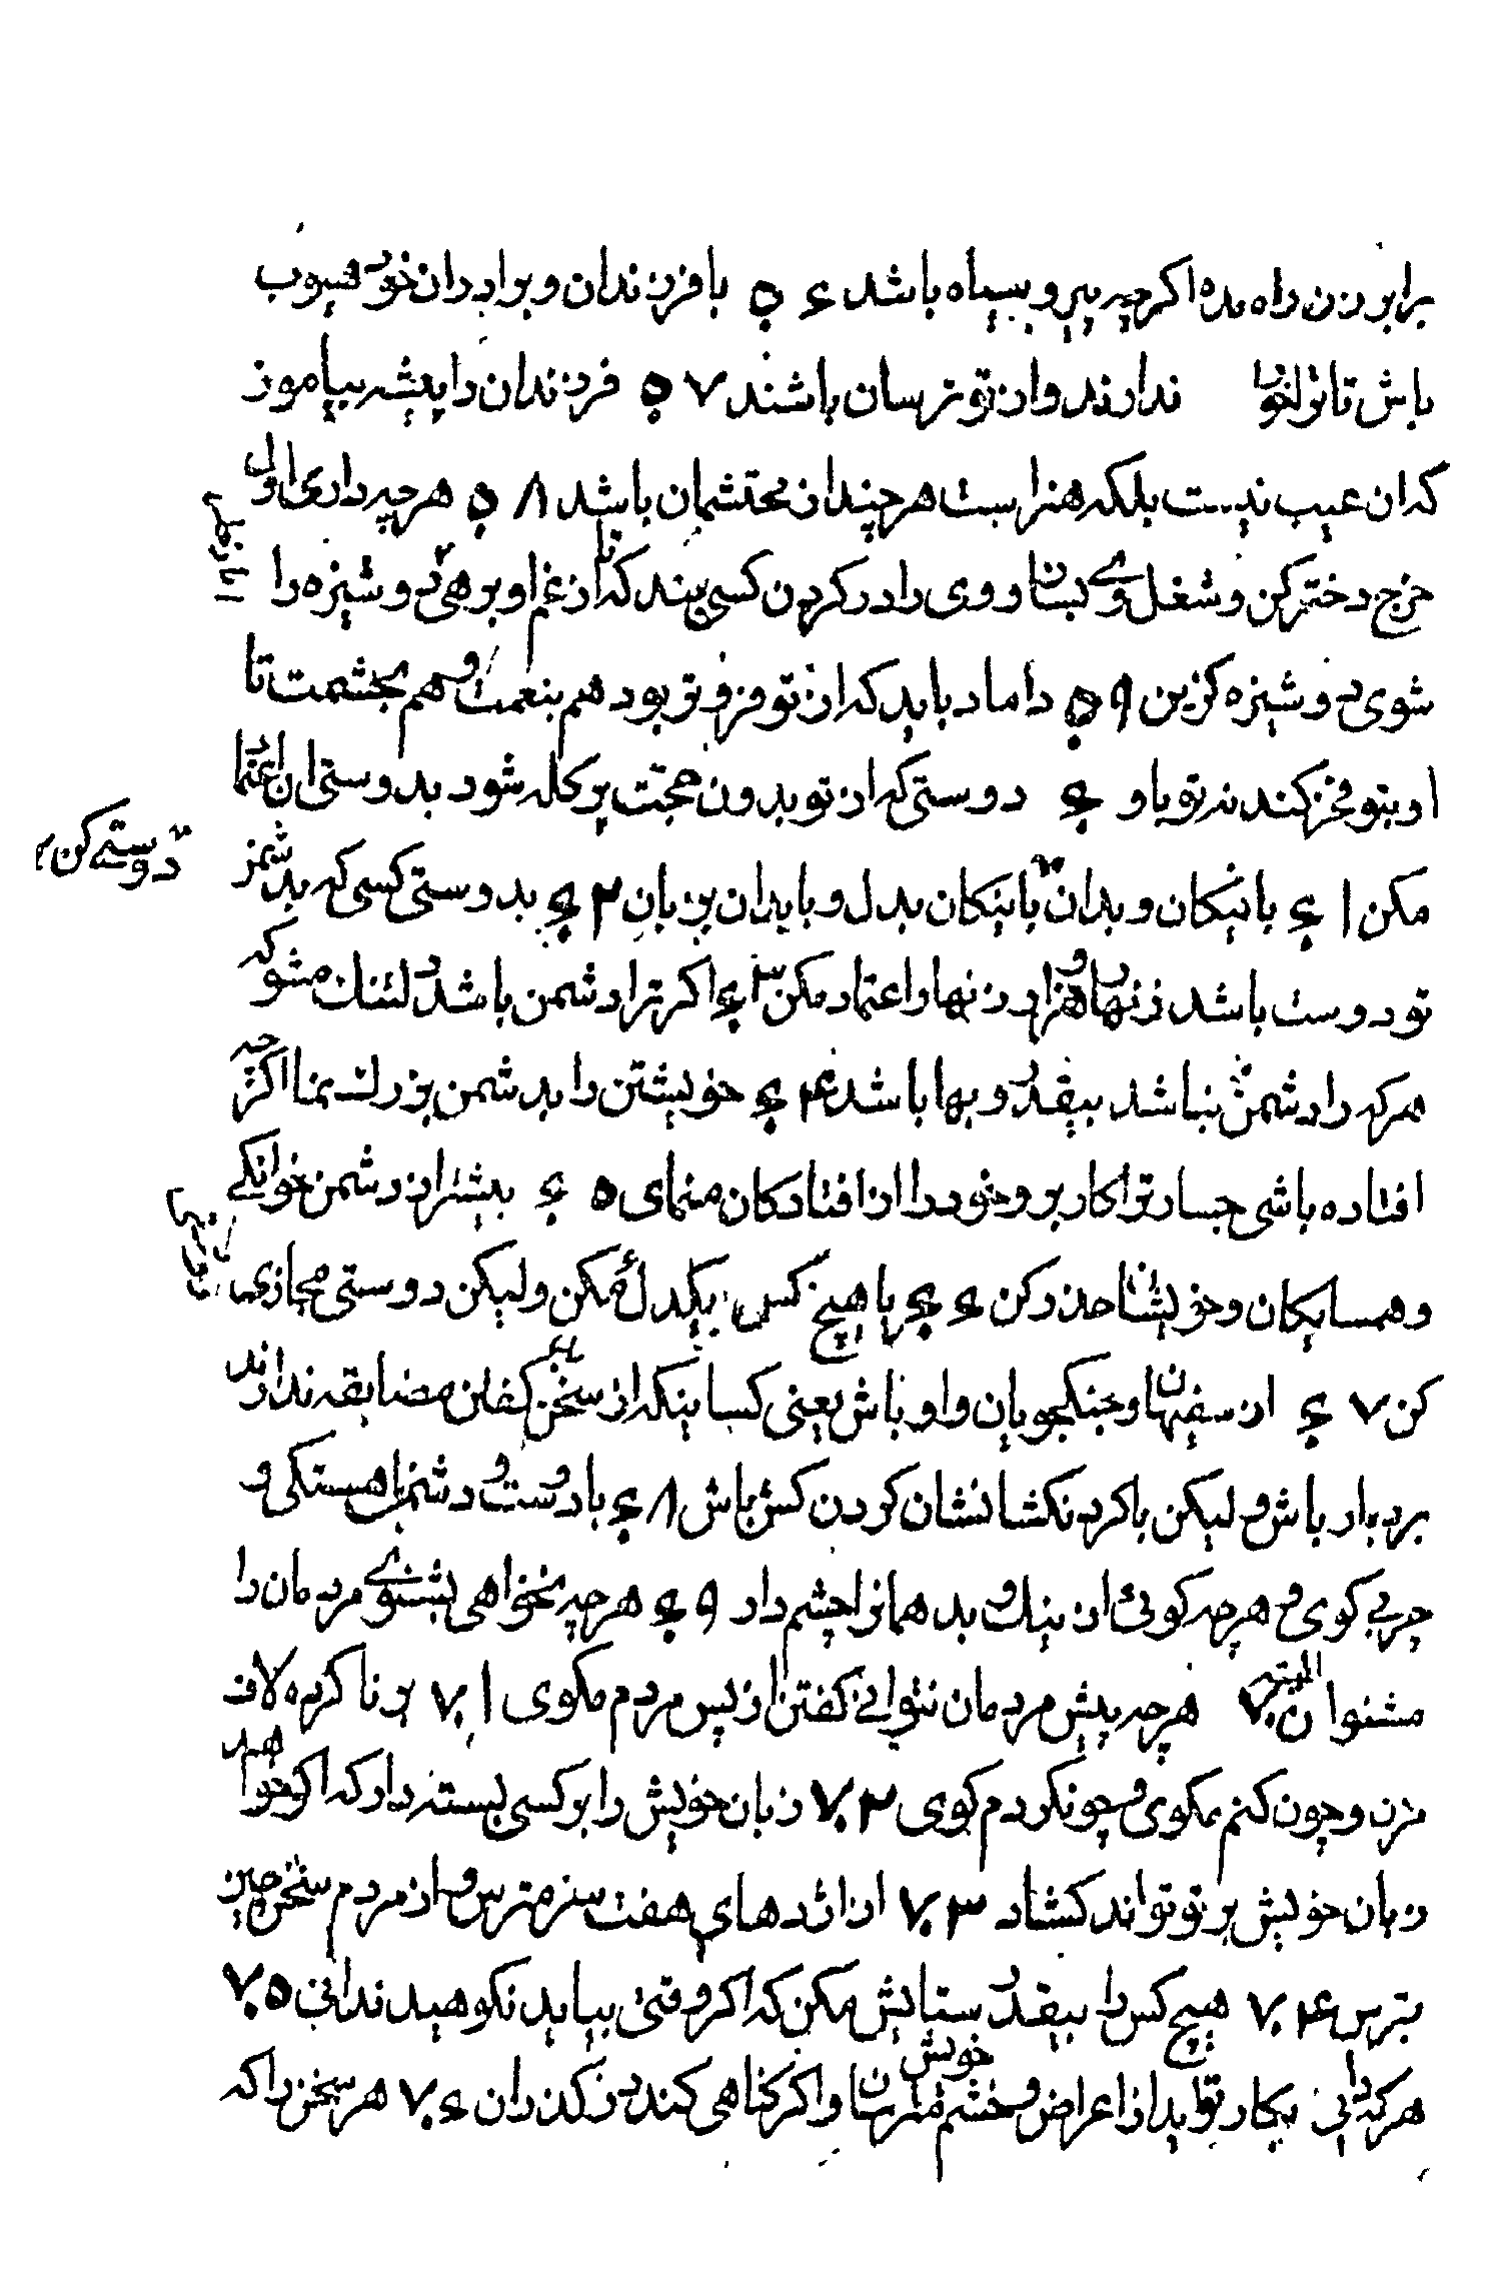 برابر زن راه مده اکرچه پیر و سیاه باشد ۵۶ با فرزندان و برادران خود هیوب
باش تا ترا خوار ندارند و از تو ترسان باشند ۵۷ فرزندان را پیشه بیاموز
که ان عیب نیست بلکه هنر است هرچند از محتشمان باشد ۵۸ هرچه داری اول
خرج دختر کن و شغل وی بساز و وی را در کردن کسی بند که تا از غم او برهی دوشیزه را
شوی دوشیزه کزین ۵۹ داماد باید که از تو فروتر بود هم بنعمت و هم بحشمت تا
او بتو فخر کند نه تو باو ۶۰ دوستی که از تو بدون حجت پر کله شود بدوستی او اعتماد
مکن ۶۱ با نیکان و بدان دوستی کن با نیکان بدل و با بدان بزبان ۶۲ بدوستی کسی که بدشمن
تو دوست باشد زنهار و هزار زنهار اعتماد مکن ۶۳ اکر ترا دشمن باشد دلتنك مشو که
هرکه را دشمن نباشد بیقدر و بها باشد ۶۴ خویشتن را بدشمن بزرك نما اکرچه
افتاده باشی و خود را از افتادکان منمای ۶۵ بیشتر از دشمن خوانکی
و همسایکان و خویشان حذر کن ۶۶ با هیچ کس یکدل مکن ولیکن دوستی مجازی
کن ۶۷ از سفیهان و جنکجویان و اوباش یعنی کسانیکه از سخن کفتن مضایقه ندارند
بردبار باش و لیکن با کردنکشان نشان کردن کش باش ۶۸ با دوست و دشمن باهستکی و
چربی کوی و هرچه کوئی از نیك و بد همانرا چشم دار ۶۹ هرچه نخواهی بشنوی مردمان را
مشنوان ۷۰ هرچه پیش مردمان نتوانی کفتن از پس مردم مکوی ۷۱ بر ناکرده لاف
مزن و چون کنم مکوی و چونکردم کوی ۷۲ زبان خویش را بر کسی بسته دار که اکر خواهد
زبان خویش بر تو تواند کشاد ۷۳ از اژدهای هفت سر مترس و از مردم سخن چین
بترس ۷۴ هیچ کس را بیقدر ستایش مکن که اکر وقتی بیاید نکوهید ندانی ۷۵
هرکه دانی بکار تو اید از اعراض و خشم خویش مترسان و اکر کناهی کند در کذران ۷۶ هر سخن را که